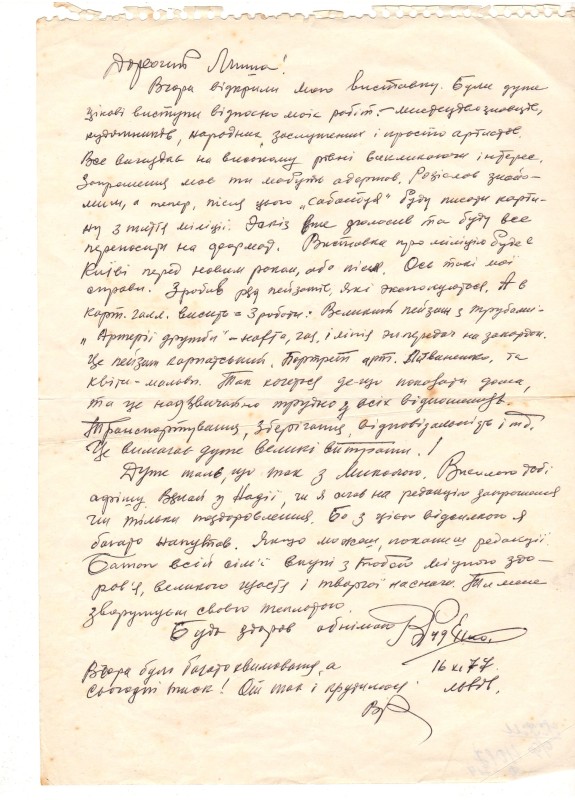 Дорогий Миша!
Вчора відкрили мою виставку. Були дуже
цікаві виступи відносно моїх робіт. – мистецтвознавців,
художників, народних, заслужених і просто артистів.
Все виглядає на високому рівні викликаючи інтерес.
Запрошення моє ти мабуть одержав.
а тепер, після цього „ буду писати карти-
ну з життя міліції. Ескіз вже та буду все
переносити на . Виставка про міліцію буде в
Києві перед новим роком, або після. Ось такі мої
справи. Зробив ряд пейзажів, які експонуються. А в
карт. галл. висить – 3 роботи: Великий пейзаж з трубами –
„Артерії дружби" – нафта, газ, і лінія передач на закордон.
Це пейзаж карпатський. Портрет арт. та
квіти – мальви. Так хочеться де-що показати дома,
та це надзвичайно трудно у всіх відношеннях.
Транспортування, зберігання, відповідальність і т.д.
Це вимагає дуже великі витрати.!
Дуже жаль, що так з Миколою. Висилаю тобі
афішу. Взнай у Надії, чи я слав на редакцію запрошення
чи тільки поздоровлення. Бо з цією відсилкою я
багато напутав. Якщо можеш, покажеш редакції.
Бажаю всій сім'ї вкупі з тобою міцного здо-
ров'я, великого щастя і творчої наснаги. Ти мене
зворушуєш своєю теплотою.
Будь здоров обнімаю
Вчора було багато хвилювання, а 16 XI 77
сьогодні тиск! От так і крутимось Львів.